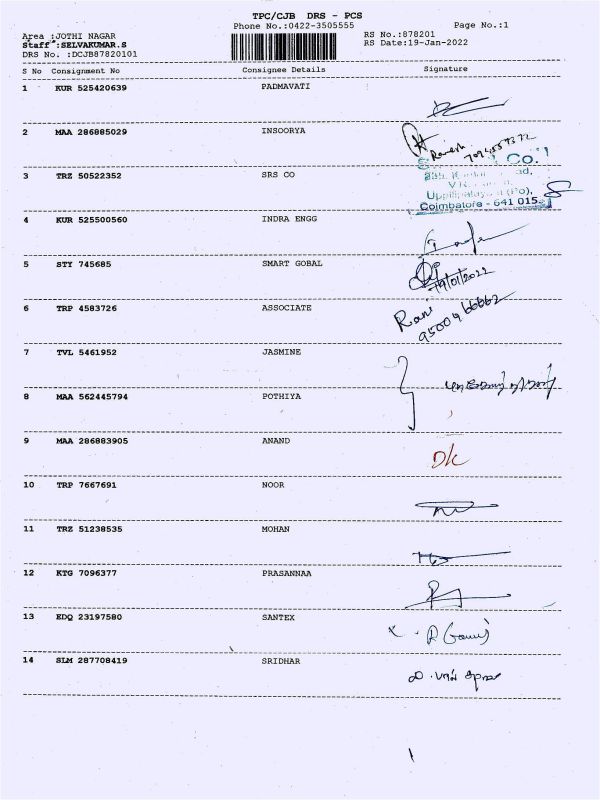 TPC/CJB DRS - PCS
Phone No.:0422-3505555
Page No.:1
Area :JOTHI NAGAR
Staff :SELVAKUMAR.S
DRS No. :DCJB87820101
RS No.:878201
RS Date:19-Jan-2022
S No Consignment No Consignee Details Signature
1 KUR 525420639 PADMAVATI
2 MAA 286885029 INSOORYA
Ramesh
3 TRZ 50522352 SRS CO
Co.
Coimbatore - 641 015
4 KUR 525500560 INDRA ENGG
5 STY 745685 SMART GOBAL
19/01/2022
6 TRP 4583726 ASSOCIATE
Rani
9500466662
7 TVL 5461952 JASMINE
8 MAA 562445794 POTHIYA
9 MAA 286883905 ANAND
10 TRP 7667691 NOOR
11 TRZ 51238535 MOHAN
12 KTG 7096377 PRASANNAA
13 EDQ 23197580 SANTEX
14 SLM 287708419 SRIDHAR